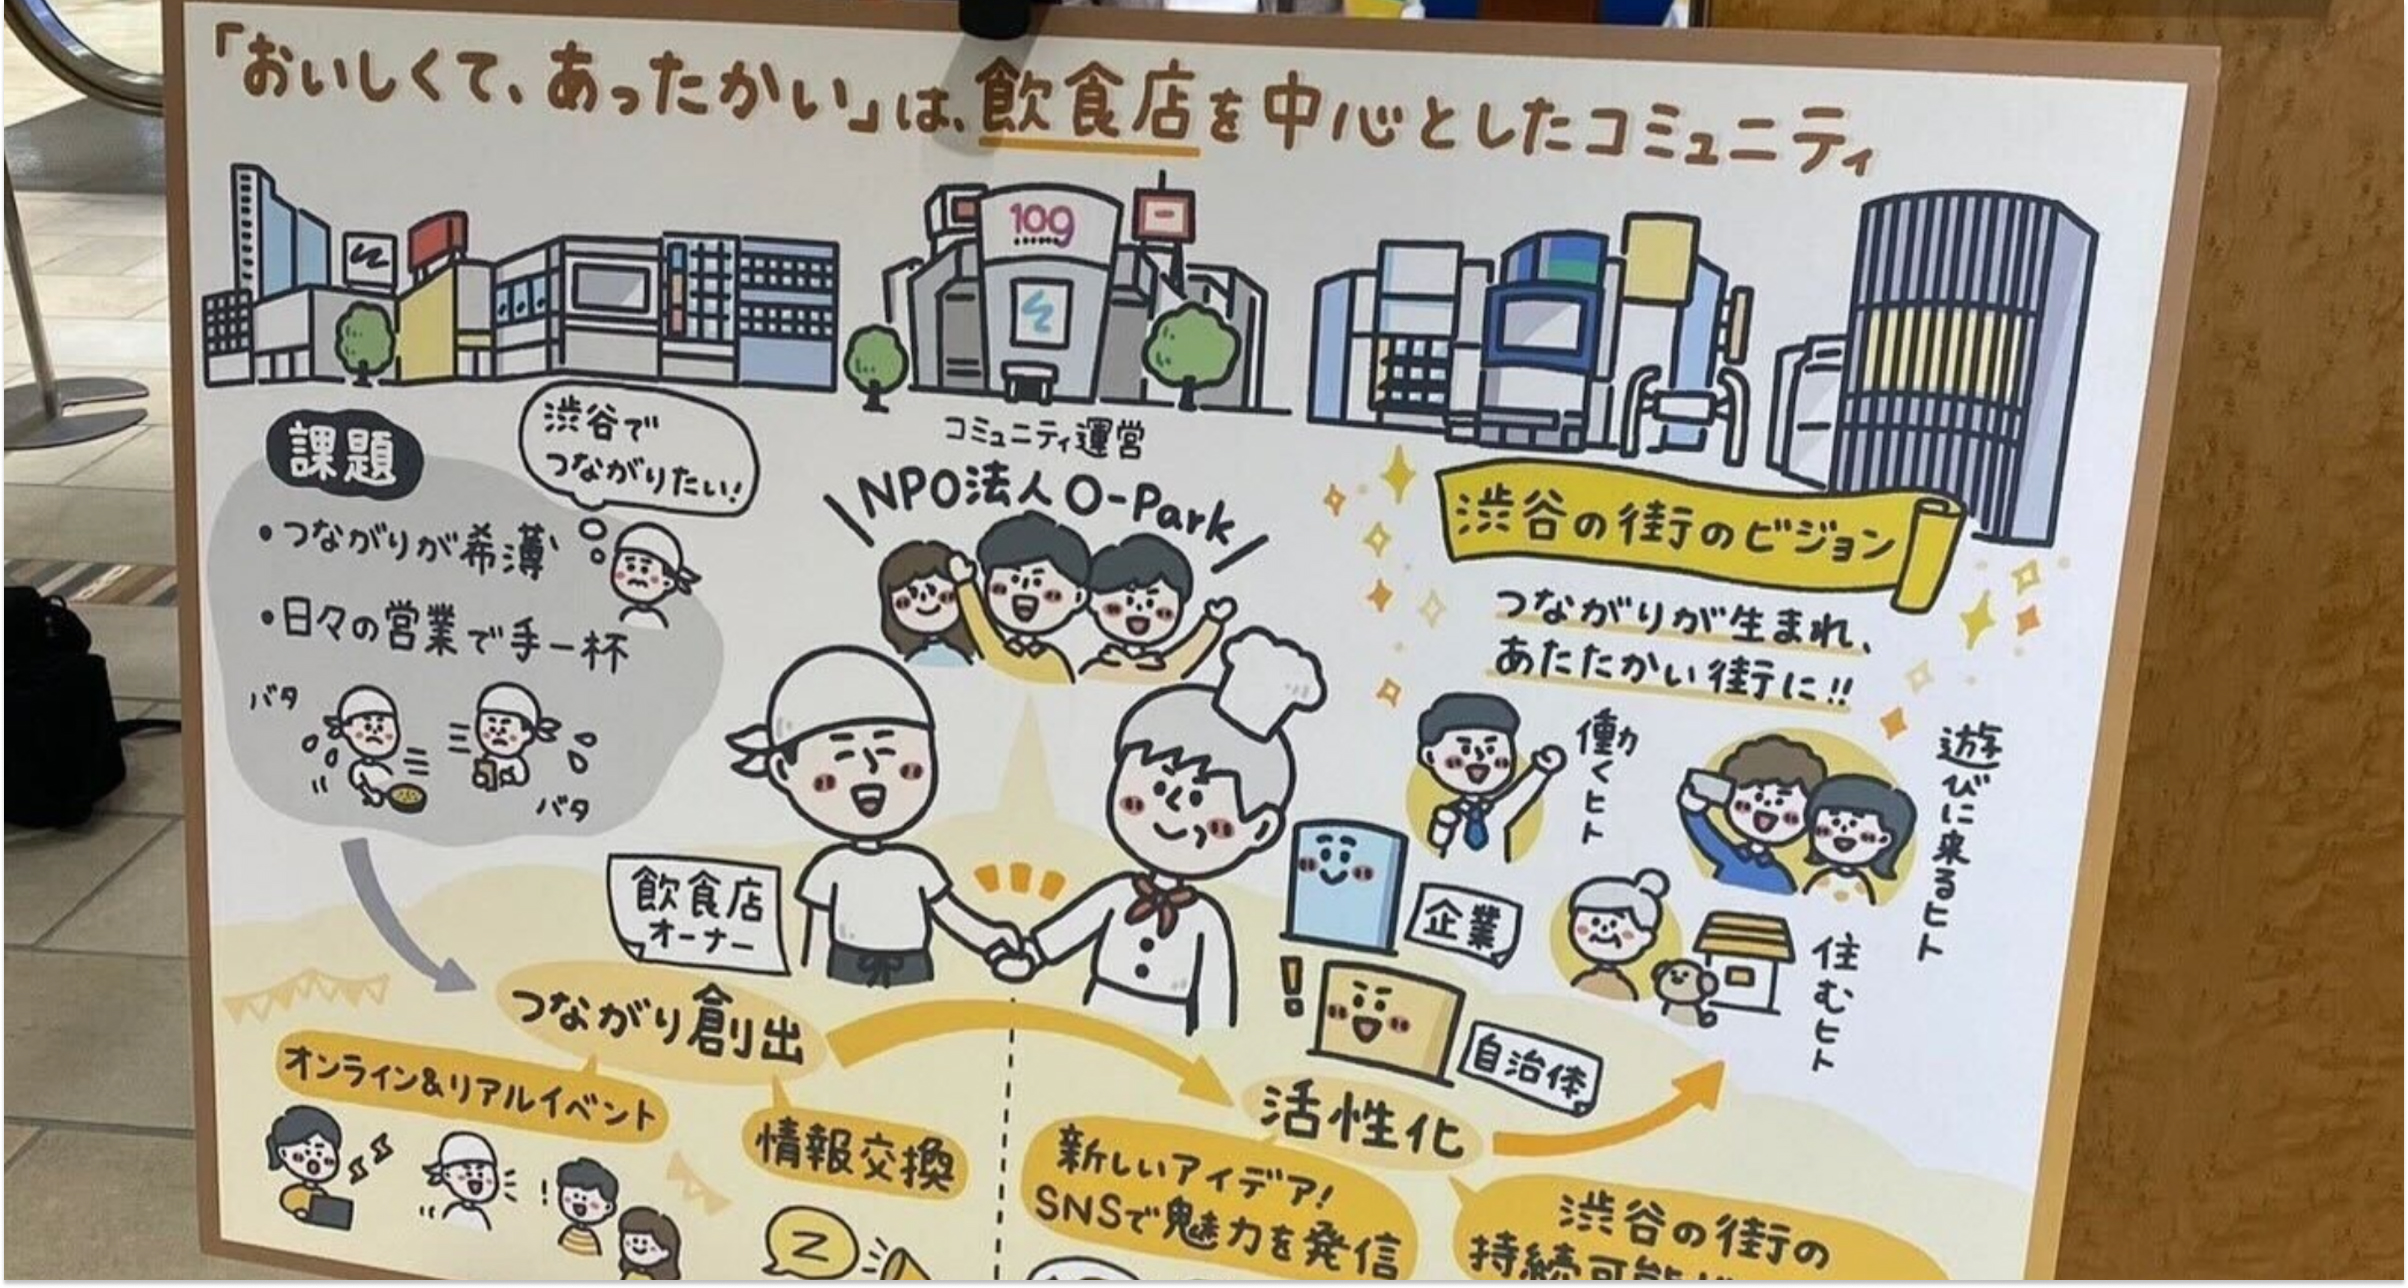 「おいしくて、あったかい」は、飲食店を中心としたコミュニティ
109
課題
渋谷で
つながりたい!
・つながりが希薄
・日々の営業で手一杯
バタ
バタ
コミュニティ運営
NPO法人O-Park
渋谷の街のビジョン
つながりが生まれ、
あたたかい街に!!
働くヒト
遊びに来るヒト
住むヒト
飲食店
オーナー
企業
自治体
つながり創出
オンライン&リアルイベント
情報交換
活性化
新しいアイデア!
SNSで魅力を発信
渋谷の街の
持続可能